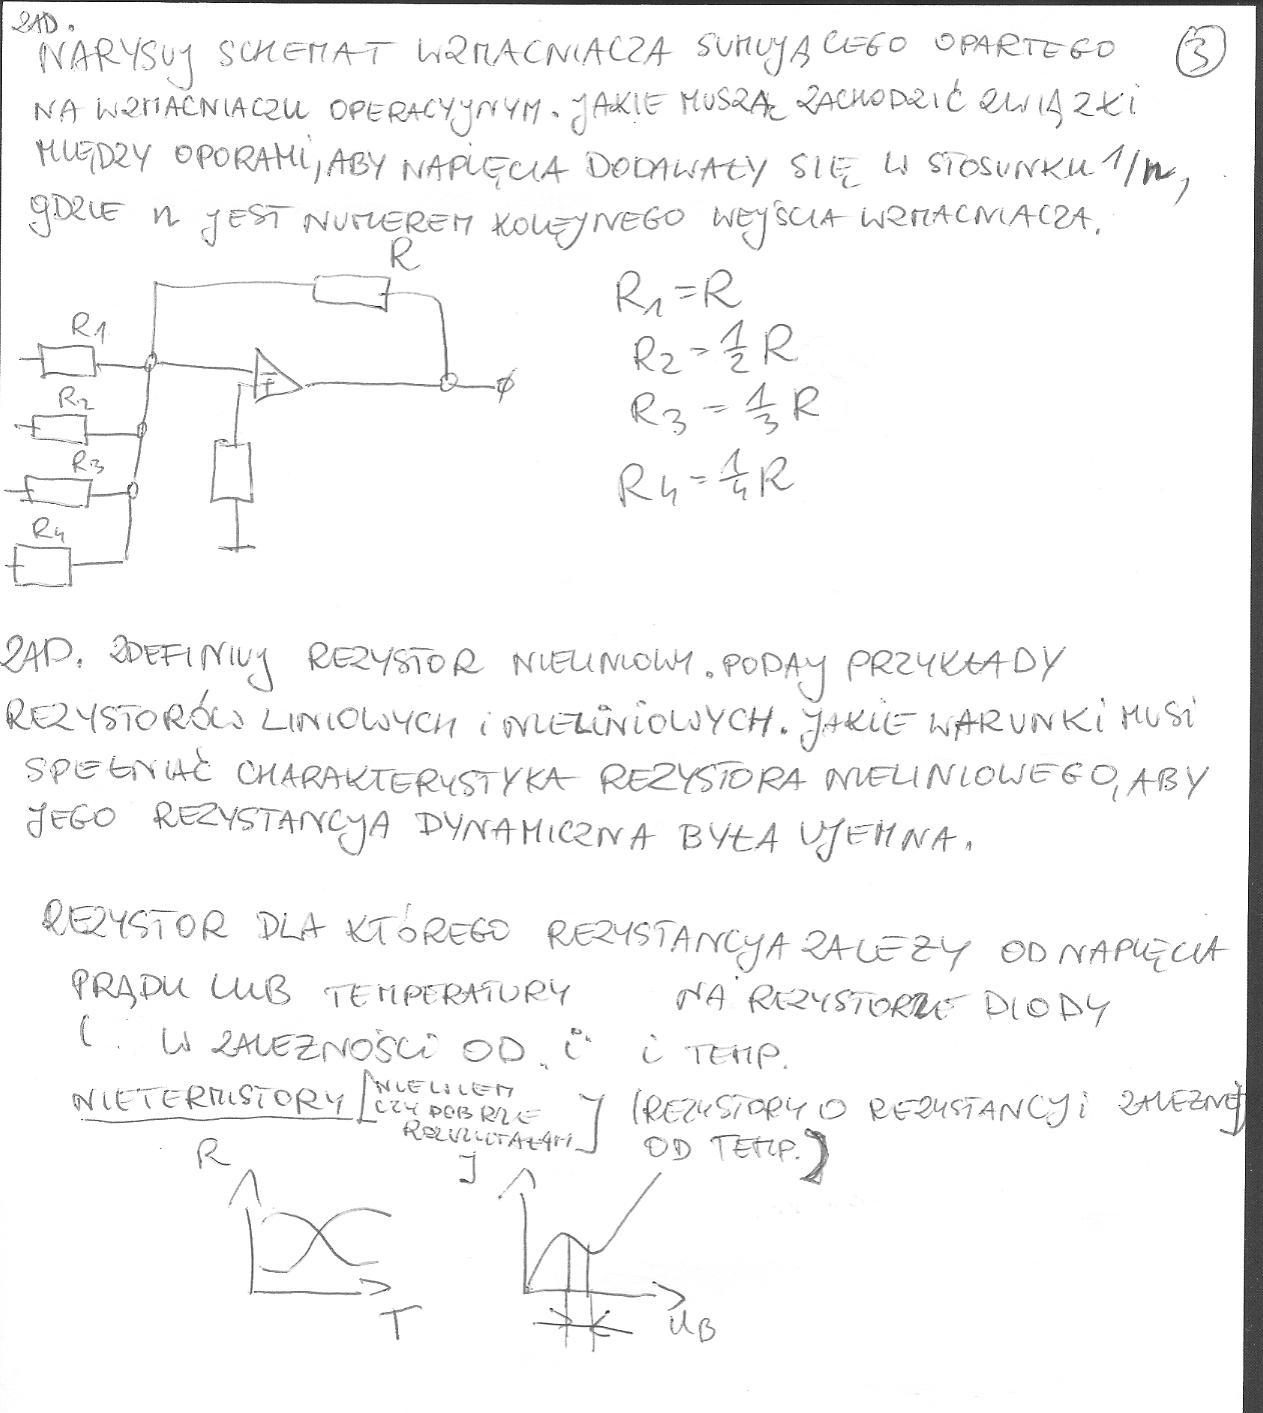 ZAD.
NARYSUJ SCHEMAT WZMACNIACZA SUMUJĄCEGO OPARTEGO
③
NA WZMACNIACZU OPERACYJNYM. JAKIE MUSZĄ ZACHODZIĆ ZWIĄZKI
MIĘDZY OPORAMI, ABY NAPIĘCIA DODAWAŁY SIĘ W STOSUNKU 1/n,
gDZIE n JEST NUMEREM KOLEJNEGO WEJŚCIA WZMACNIACZA.
R
R1
R2
R3
R4
+
R1 = R
R2 = 1/2 R
R3 = 1/3 R
R4 = 1/4 R
ZAD. ZDEFINIUJ REZYSTOR NIELINIOWY. PODAJ PRZYKŁADY
REZYSTORÓW LINIOWYCH i NIELINIOWYCH. JAKIE WARUNKI MUSI
SPEŁNIAĆ CHARAKTERYSTYKA REZYSTORA NIELINIOWEGO, ABY
JEGO REZYSTANCJA DYNAMICZNA BYŁA UJEMNA.
REZYSTOR DLA KTÓREGO REZYSTANCJA ZALEZY OD NAPIĘCIA
PRĄDU LUB TEMPERATURY NA REZYSTORZE DIODY
( W ZALEZNOŚCI OD „i" i TEMP.
NIETERMISTORY [NIE WIEM
CZY DOBRZE
ROZCZYTAŁAM] (REZYSTORY O REZYSTANCJI ZALEZNEJ
OD TEMP.)
R
T
J
UB